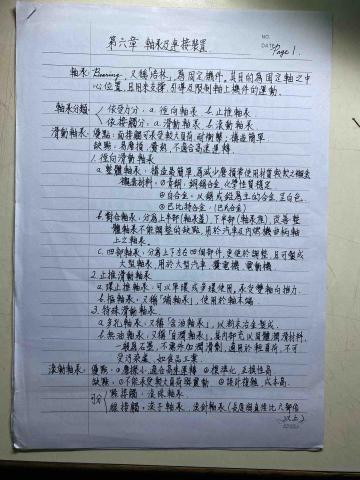 NO.
DATE Page 1.
第六章 軸承及連接裝置
軸承: Bearing, 又稱「培林」, 為固定機件, 其目的為固定軸之中
心位置, 且用來支撐、引導及限制軸上機件的運動.
軸承分類 依受力分: a. 徑向軸承 b. 止推軸承
依接觸分: a. 滑動軸承 b. 滾動軸承
滑動軸承: 優點: 面接觸可承受較大負荷、耐衝擊、構造簡單
缺點: 易磨損、費油, 不適合高速運轉.
1. 徑向滑動軸承
a. 整體軸承: 構造最簡單, 為減少磨損常使用材質較軟之襯套
襯套材料: ① 青銅: 銅錫合金, 化學性質穩定
② 白合金: 以錫或鉛為主的合金, 呈白色
③ 巴比特合金. (巴氏合金)
b. 對合軸承: 分為上半部(軸承蓋), 下半部(軸承座), 改善整
體軸承不能調整的缺點, 用於汽車及內燃機曲柄軸
上之軸承.
c. 四部軸承: 分為上下左右四個部件, 更便於調整, 且可製成
大型軸承, 用於大型汽車、發電機、電動機
2. 止推滑動軸承
a. 環止推軸承: 可以單環或多環使用, 承受雙向推力.
b. 樞軸承: 又稱「端軸承」, 使用於軸末端
3. 特殊滑動軸承
a. 多孔軸承: 又稱「含油軸承」, 以粉末冶金製成.
b. 無油軸承: 又稱「自潤軸承」, 其內部充以固體潤滑材料,
一般為石墨, 不需外加潤滑劑, 適用於輕負荷, 不可
受污染處, 如食品工業
滾動軸承: 優點: ① 磨擦小, 適合高速運轉 ② 標準化, 互換性高
缺點: ① 不能承受較大負荷與震動 ② 設計複雜, 成本高.
可分 點接觸: 滾珠軸承
線接觸: 滾子軸承、滾針軸承 (長度與直徑比六部份
以上)